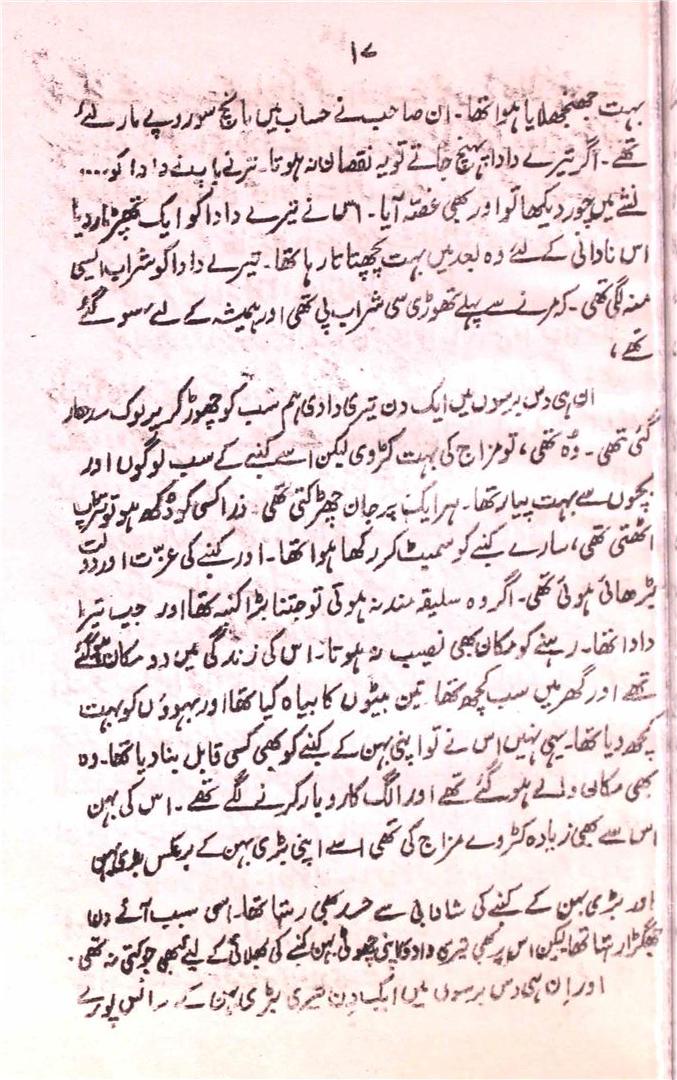 ۱۷
بہت جھنجھلایا ہوا تھا۔ ان صاحب نے حساب میں پانچ سو روپے مار لئے
تھے۔ اگر تیرے دادا پہنچ جاتے تو یہ نقصان نہ ہوتا۔ تیرے باپ نے دادا کو....
نشے میں چور دیکھا تو اور بھی غصّہ آیا۔ اس نے تیرے دادا کو ایک تھپڑ مار دیا
اس نادانی کے لئے وہ بعد میں بہت پچھتاتا رہا تھا۔ تیرے دادا کو شراب ایسی
منہ لگی تھی۔ کہ مرنے سے پہلے تھوڑی سی شراب پی تھی اور ہمیشہ کے لئے سو گئے
تھے،
ان ہی دس برسوں میں ایک دن تیری دادی ہم سب کو چھوڑ کر پرلوک سدھار
گئی تھی۔ وُہ تھی، تو مزاج کی بہت کڑوی لیکن اسے کنبے کے سب لوگوں اور
بچوں سے بہت پیار تھا۔ ہر ایک پر جان چھڑکتی تھی۔ ذرا کسی کو دُکھ ہو تو تڑپ
اٹھتی تھی، سارے کنبے کو سمیٹ کر رکھا ہوا تھا۔ اور کنبے کی عزّت اور دولت
بڑھائی ہوئی تھی۔ اگر وہ سلیقہ مند نہ ہوتی تو جتنا بڑا کنبہ تھا اور جیب تیرا
دادا تھا۔ رہنے کو مکان بھی نصیب نہ ہوتا۔ اس کی زندگی میں دو مکان ہو گئے
تھے اور گھر میں سب کچھ تھا تین بیٹوں کا بیاہ کیا تھا اور بہوؤں کو بہت
کچھ دیا تھا۔ یہی نہیں اس نے تو اپنی بہن کے کنبے کو بھی کسی قابل بنا دیا تھا۔ وہ
بھی مکان والے ہو گئے تھے اور الگ کاروبار کرنے لگے تھے۔ اس کی بہن
اس سے بھی زیادہ کڑوے مزاج کی تھی اسے اپنی بڑی بہن کے برعکس بڑی بہن
اور بڑی بہن کے کنبے کی شادابی سے حسد بھی رہتا تھا۔ اسی سبب آئے دن
جھگڑا رہتا تھا لیکن اس پر بھی تیری دادی اپنی چھوٹی بہن کنبے کی بھلائی کے لیئے کبھی چوکتی نہ تھی۔
اور اِن ہی دس برسوں میں ایک دِن تیری بڑی بہن کے پورے